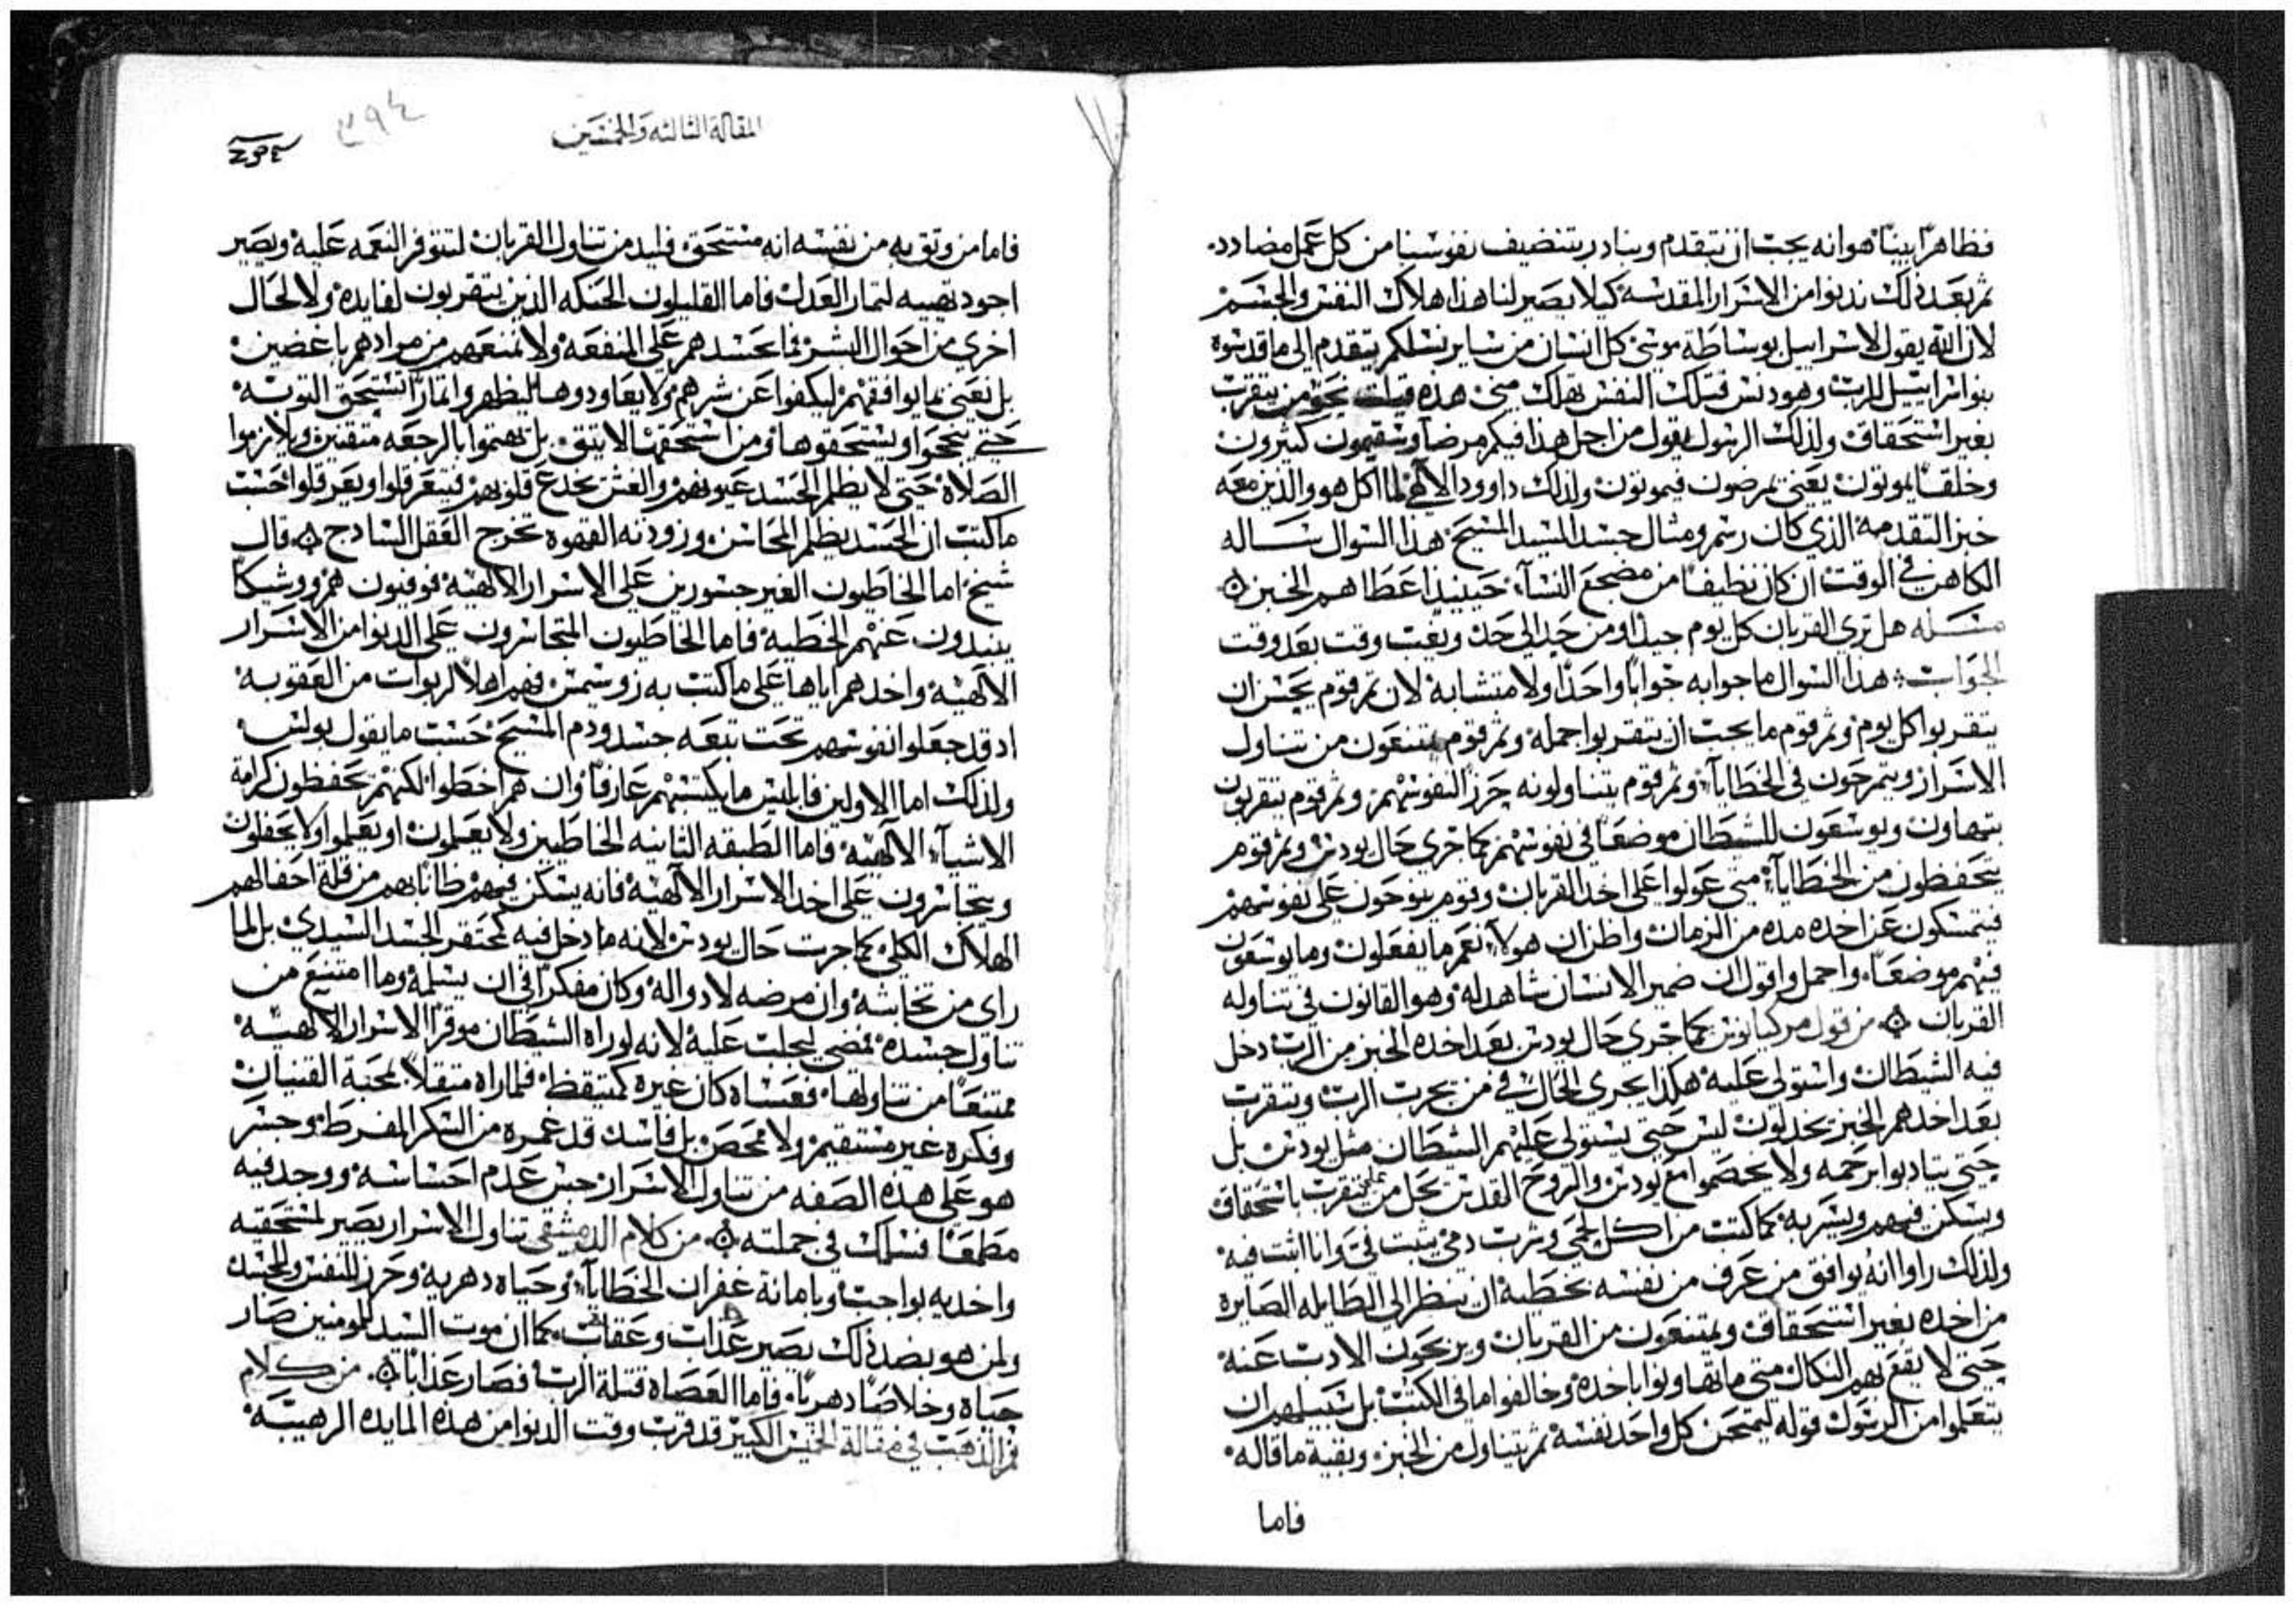 فظاهرًا بينًا هوانه يجب ان نتقدم ونبادر بتنضيف نفوسنا من كل عمل مضادد.
ثم بعد ذلك ندنوا من الاسرار المقدسه كيلا يصير لنا هذا هلاك النفس والجسم
لان الله يقول لاسراييل بوساطة موسى كل انسان من ساير نسلكم يتقدم الى ما قدسوه
بنوا سراييل للرب وهو دنس فتلك النفس تهلك مني هذه قيلت نحو من يتقرب
بغير استحقاق ولذلك الرسول يقول من اجل هذا فيكم مرضا وسقيمون كثيرون
وخلقًا يموتون يعني يمرضون فيموتون ولذلك داوود الالاهي لما اكل هو والذين معه
خبز التقدمه الذي كان رسم ومثال جسد السيد المسيح هذا السوال ساله
الكاهن في الوقت ان كان نظيفًا من مضجع النسآء حينيذ اعطاهم الخبز
مساله هل تري القربان كل يوم جيد او من حد الى حد وبعب وقت بعد وقت
الجواب هذا السوال ما جوابه جوابًا واحدًا ولا متشابه لان ثم قوم يحسن ان
يتقربوا كل يوم وثم قوم ما يجب ان يتقربوا جمله وثم قوم يمتنعون من تناول
الاسرار ويتمرحون في الخطايآ وثم قوم يتناولونه حرز النفوسهم وثم قوم يتقربون
بتهاون ويوسعون للشيطان موضعًا في نفوسهم كما جرى حال يودس وثم قوم
يتحفظون من الخطايآ متى عولوا على اخد القربان وقوم ينوحون على نفوسهم
فيتمسكون عن اخده مده من الزمان واظن ان هولآء نعم ما يفعلون وما يوسعون
فيهم موضعًا واجمل واقول ان ضمير الانسان شاهد له وهو القانون في تناوله
القربان من قول مركيانوس كما جرى حال يودس بعد اخده الخبز من الرب دخل
فيه الشيطان واستولى عليه هكذا يجري الحال في من يجرب الرب ويتقرب
بعد اخدهم الخبز يخدلون ليس حتى يستولي عليهم الشيطان مثل يودس بل
حتى يتادبوا برحمه ولا يخصموا مع يودس والروح القدس يحل من يتقرب باستحقاق
ويسكن فيهم ويسر به كما كتب من اكل لحمي وشرب دمي يثبت في وانا اثبت فيه
ولذلك راوا انه يوافق من عرف من نفسه بخطية ان ينظر الى الطايله الصايرة
من اخده بغير استحقاق ويمتنعون من القربان ويربحون الادب عنه
حتى لا يقع بهم النكال متى ما تهاونوا باخده وخالفوا ما في الكتب بل سبيلهم ان
يتعلموا من الرسول قوله ليمتحن كل واحد نفسه ثم يتناول من الخبز وبقية ما قاله
فاما
المقالة الثالثه والخمسين
٣٩٤
فاما من وثق به من نفسه انه مستحق فليدمن تناول القربان لتتوفر النعمه عليه ويصير
اجود تهييه لثمار العدل فاما القليلون الحنكه الذين يتقربون لفايده ولا لحال
اخري من احوال البشر فما نحسدهم على المنفعه ولا نمنعهم من مرادهم باغضين
بل نعني بما يوافقهم ليكفوا عن شرهم ولا يعاودوها ليظهروا اثمارًا تستحق التوبه
حتى ينجحوا ويستحقوها ومن استحقها لا يتق بل يهتموا بالرجعه متقنين ويلازموا
الصلاة حتى لا يظلم الحسد عيونهم والغش يخدع قلوبهم فيتعرقلوا ويعرقلوا حسب
ما كتب ان الحسد يظلم المحاسن وزودنه الشهوة تخرج العقل السادج قال
شيخ اما الخاطيون الغير جسورين على الاسرار الالاهيه فوفيون هم وروشيكا
ينبدون عنهم الخطية فاما الخاطيون المتجاسرون على الدنوا من الاسرار
الالاهية واخدهم اياها على ما كتب به زوسيمس فهم اهلاً لربوات من العقوبه
اد قد جعلوا نفوسهم تحت تبعه جسد ودم المسيح حسب ما يقول بولس
ولذلك اما الاولين فابليس ما يكتسبهم عارفًا وان هم اخطوا لكنهم يحفظون كرامة
الاشيآء الالاهية فاما الطبقه الثانيه الخاطين ولا يعلمون او يعلموا ولا يحفلون
ويتجاسرون على اخد الاسرار الالاهية فانه يسكن فيهم ظانًا بهم من قلة احفالهم
الهلاك الكلي كما جرت حال يودس لانه ما دخل فيه كمحتقر الجسد السيدي بل لما
راى من نجاسته وان مرضه لا دوا له وكان مفكرًا في ان يسلمه وما امتنع من
تناول جسده فمضى ليجلب عليه لانه لو راه الشيطان موقرًا الاسرار الالاهيه
ممتنعًا من تناولها فعساه كان غيره كمتيقظ فلما راه متقلًا لمحبة القنيان
وفكره غير مستقيم ولا محص بل فاسد قد غمره من السكر المفرط وجسر
هو على هذه الصفه من تناول الاسرار حس عدم احساسه ووجد فيه
مطمعًا فسلك في جملته من كلام الدمشقي تناول الاسرار يصير لمستحقيه
واخديه بواجب وبامانة غفران الخطايآ وحياه دهرية وحرز للنفس والجسد
ولمن هو بضد ذلك يصير عداب وعقاب كما ان موت السيد للمومنين صار
حياة وخلاصًا دهريًا فاما العصاة قتلة الرب فصار عذابًا من كلام
فم الذهب في مقالة الخميس الكبير قد قرب وقت الدنوا من هذه المايده الرهيبه